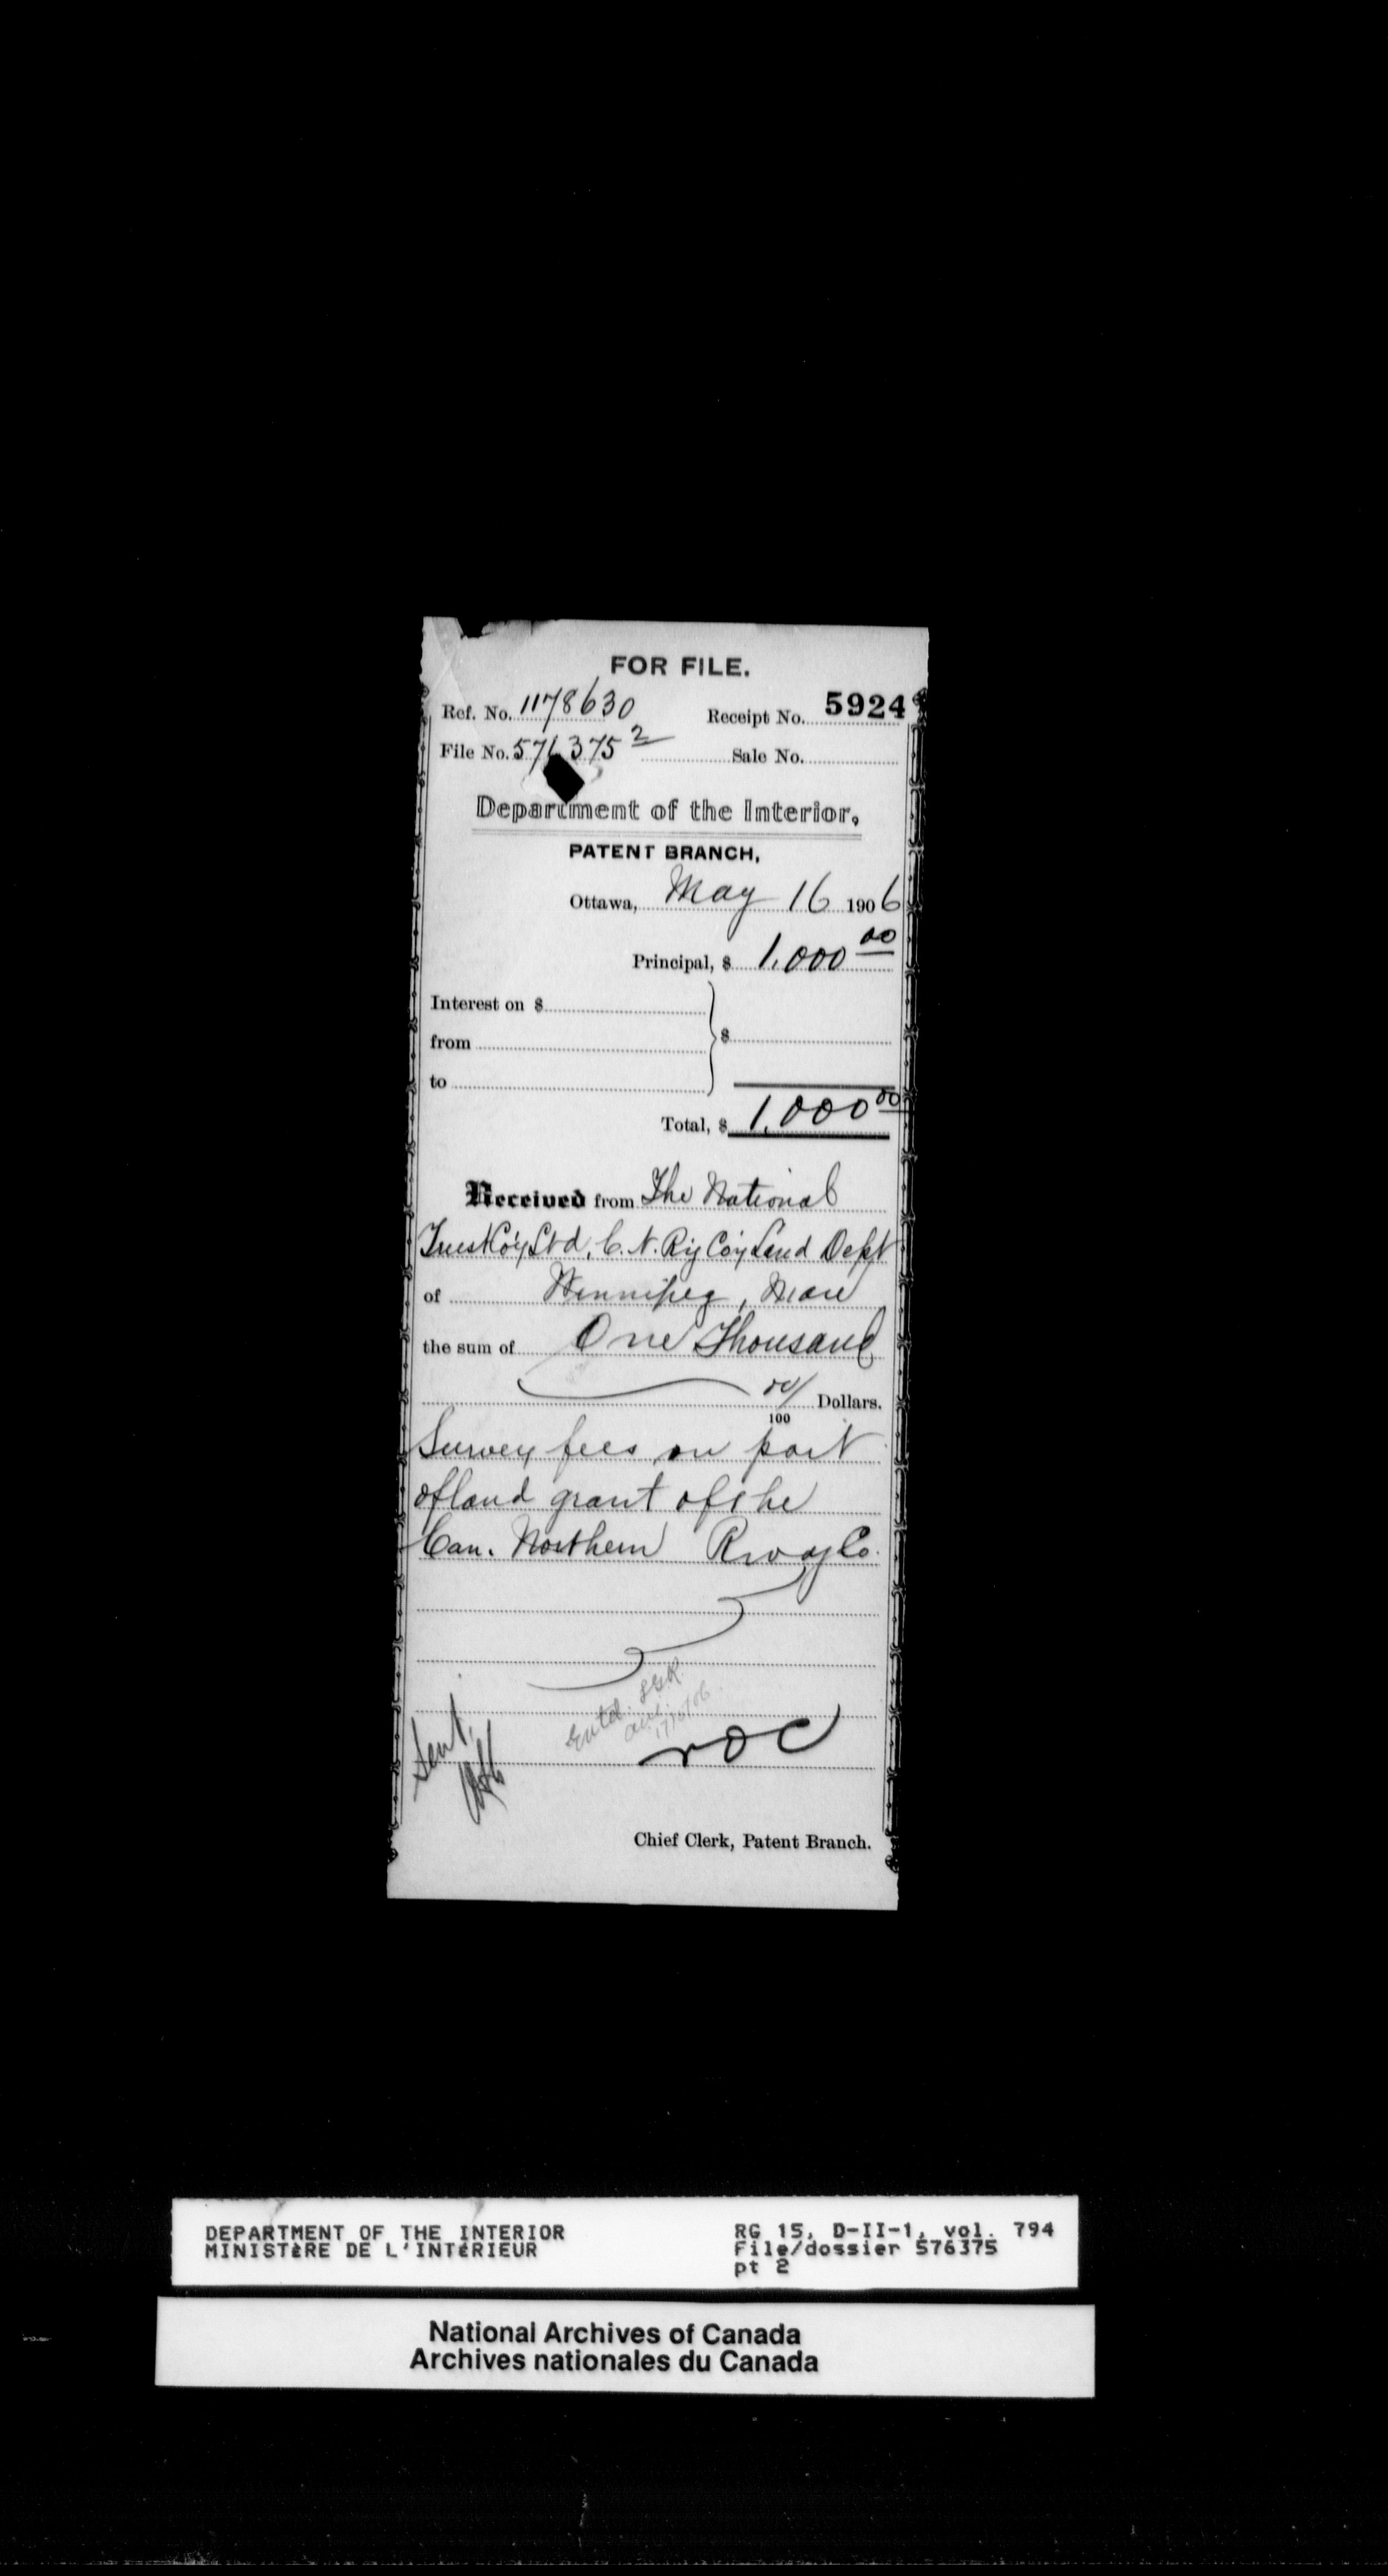 FOR FILE.
Ref. No. 1178630 Receipt No. 5924
File No. 576375 2 Sale No.
Department of the Interior,
PATENT BRANCH,
Ottawa, May 16 1906
Principal, $ 1,000 00
Interest on $
from $
to
Total, $ 1,000 00
Received from The National
Trust Coy Ltd, C. N. Ry Coy Land Dept
of Winnipeg, Man
the sum of One Thousand
00/100 Dollars.
Survey fees on part
of land grant of the
Can. Northern Rway Co.
Entd.
17/5/06
Sent.
Chief Clerk, Patent Branch.
DEPARTMENT OF THE INTERIOR
MINISTÈRE DE L'INTÉRIEUR
RG 15, D-II-1, vol. 794
File/dossier 576375
pt 2
National Archives of Canada
Archives nationales du Canada